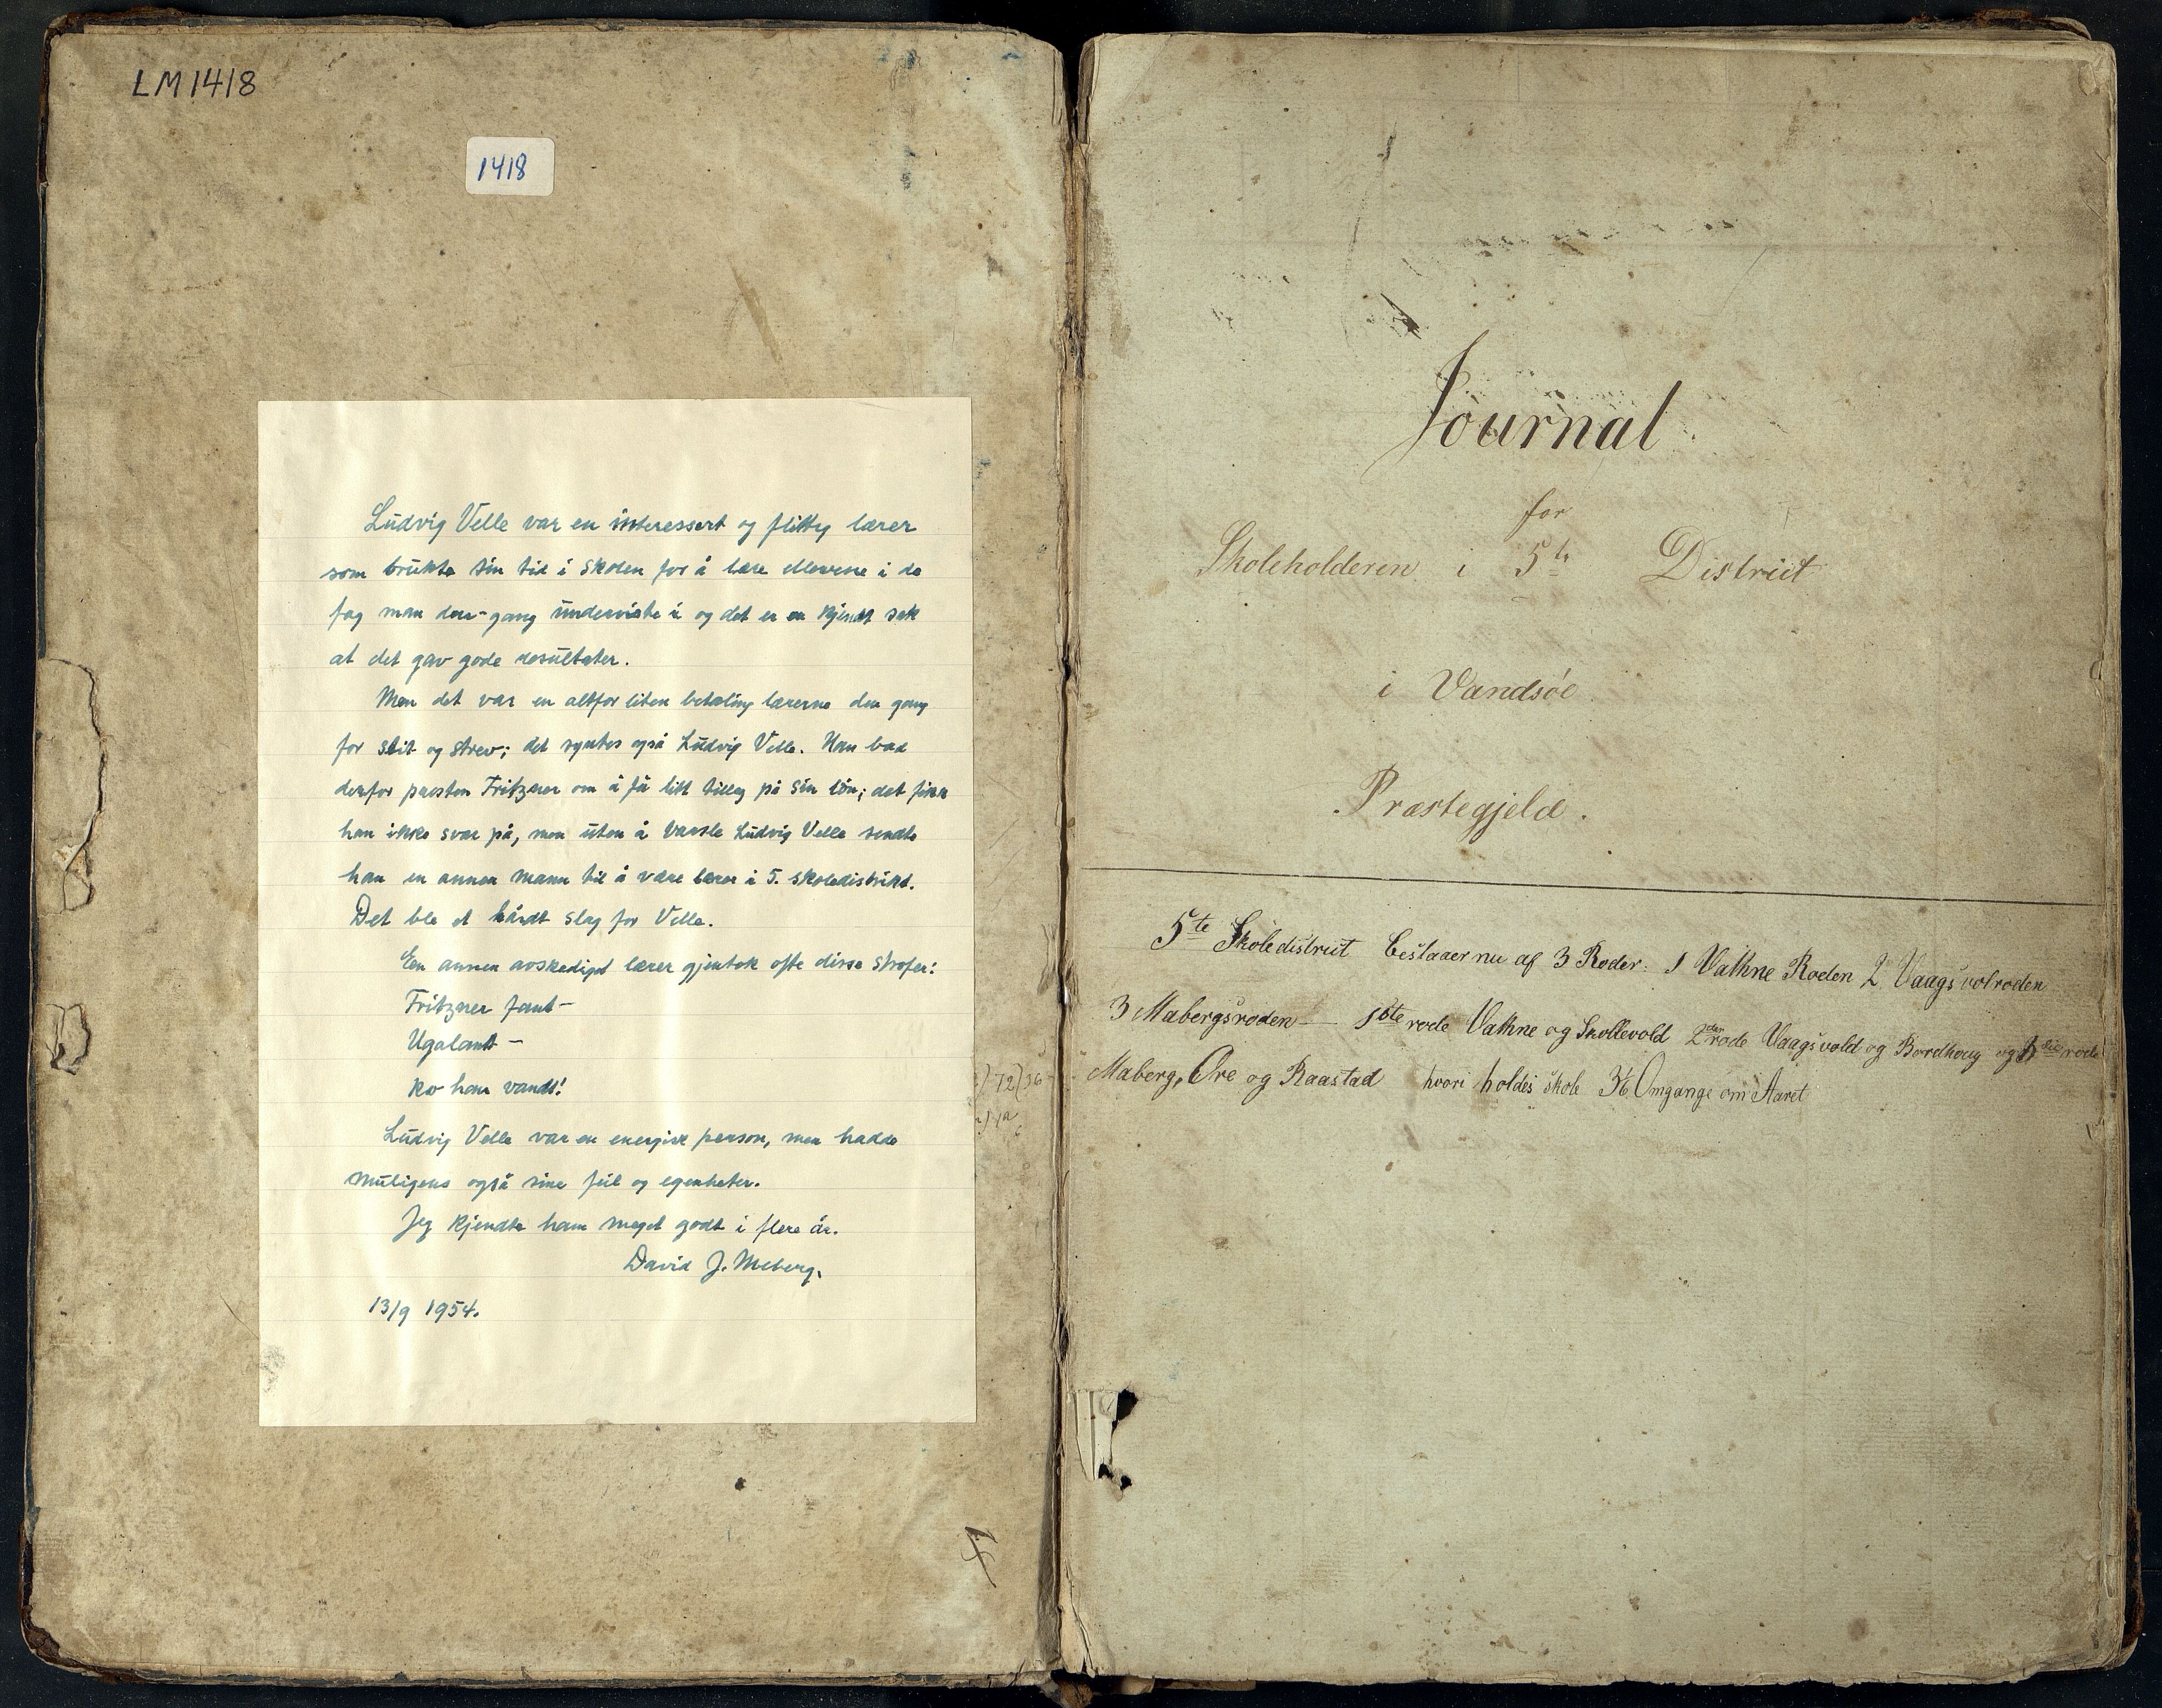 LM1418
1418
Ludvig Velle var en interessert og flittig lærer
som brukte sin tid i skolen for å lære elevene i de
fag man den-gang underviste i og det er en kjendt sak
at det gav gode resultater.
Men det var en altfor liten betaling lærerne den gang
for slit og strev; det syntes også Ludvig Velle. Han bad
derfor prosten Fritzner om å få litt tillæg på sin lön; det fikk
han ikke svar på, men uten å varsle Ludvig Velle sendte
han en annen mann til å være lærer i 5. skoledistrikt.
Det ble et hårdt slag for Velle.
En annen avskediget lærer gjentok ofte disse strofer:
Fritzner fant-
Ugalant -
ko han vandt!
Ludvig Velle var en energisk person, men hadde
muligens også sine feil og egenheter.
Jeg kjendte ham meget godt i flere år.
David J. Meberg.
13/9 1954.
72 36
Journal
for
Skoleholderen i 5te District
i Vandsøe
Præstegjeld.
5te Skoledistrict bestaaer nu af 3 Roder: 1 Vathne Roden 2 Vaagsvolroden
3 Mabergsroden — 1ste rode Vathne og Skollevold 2den rode Vaagsvold og Bordhoug og rode
Maberg, Øre og Raastad hvori holdes skole Omgange om Aaret